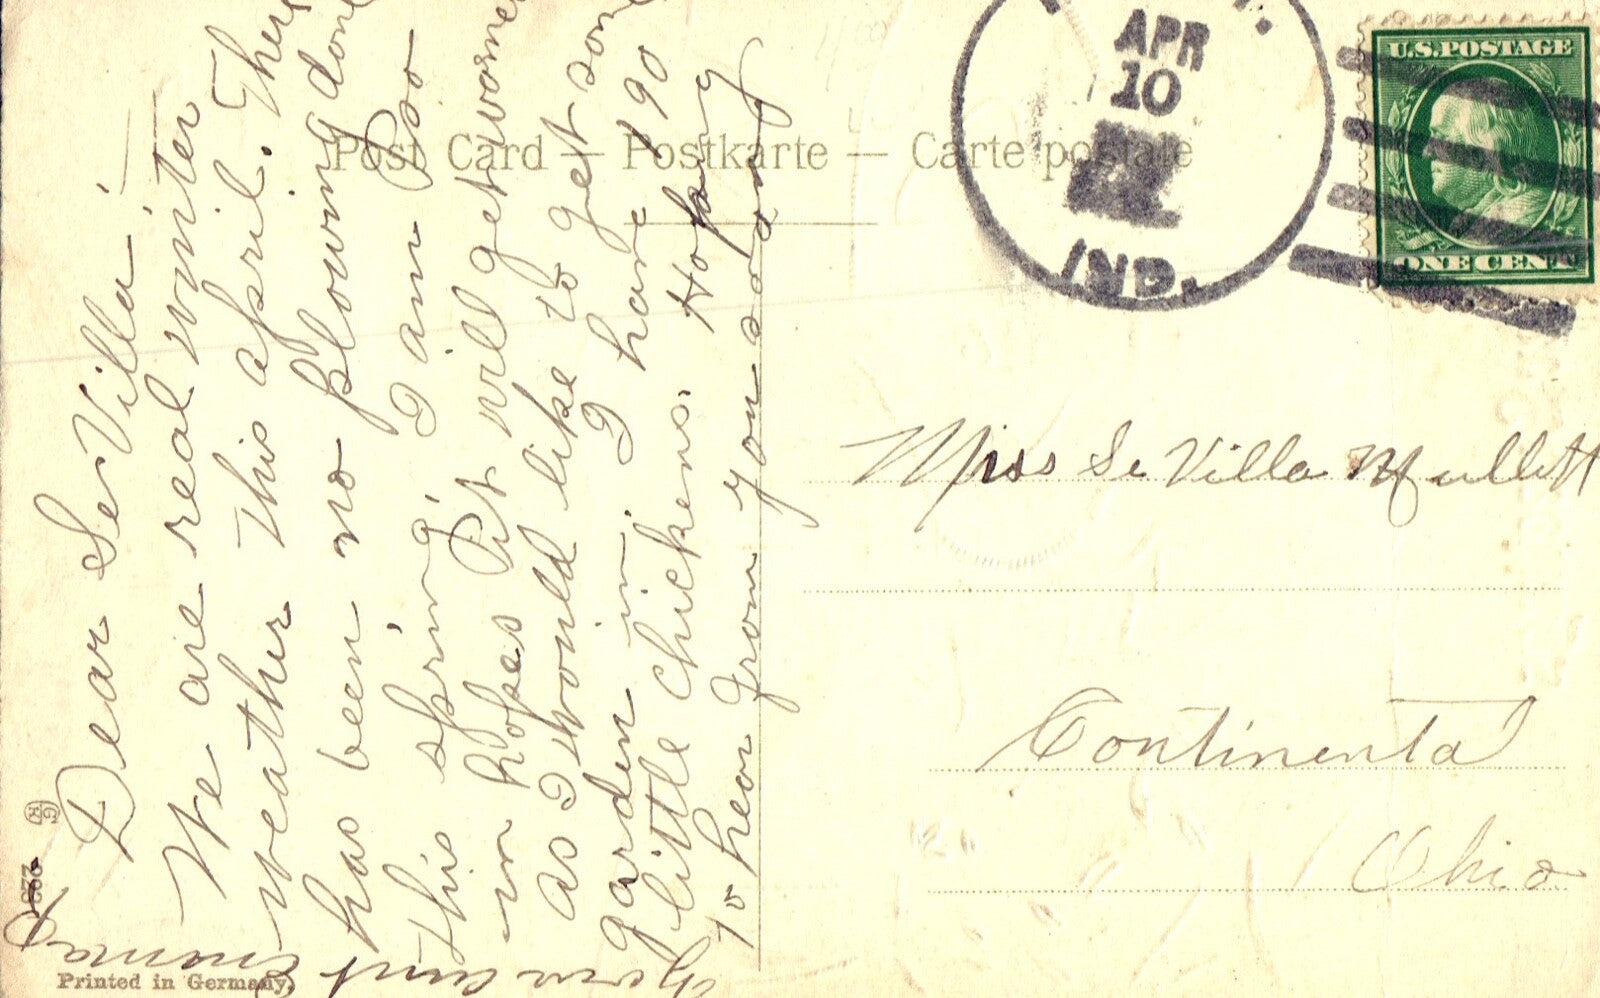 Post Card — Postkarte — Carte postale
APR
10
IND.
U.S. POSTAGE
ONE CENT
Dear SeVilla:—
We are real winter
weather this april. There
has been no plowing done
this spring. I am
in hopes it will get
as I would like to get som
garden in. I have 190
little chickens. Hoping
to hear from you soon
aunt
Miss Se Villa Mullett
Continental
Ohio
Printed in Germany.